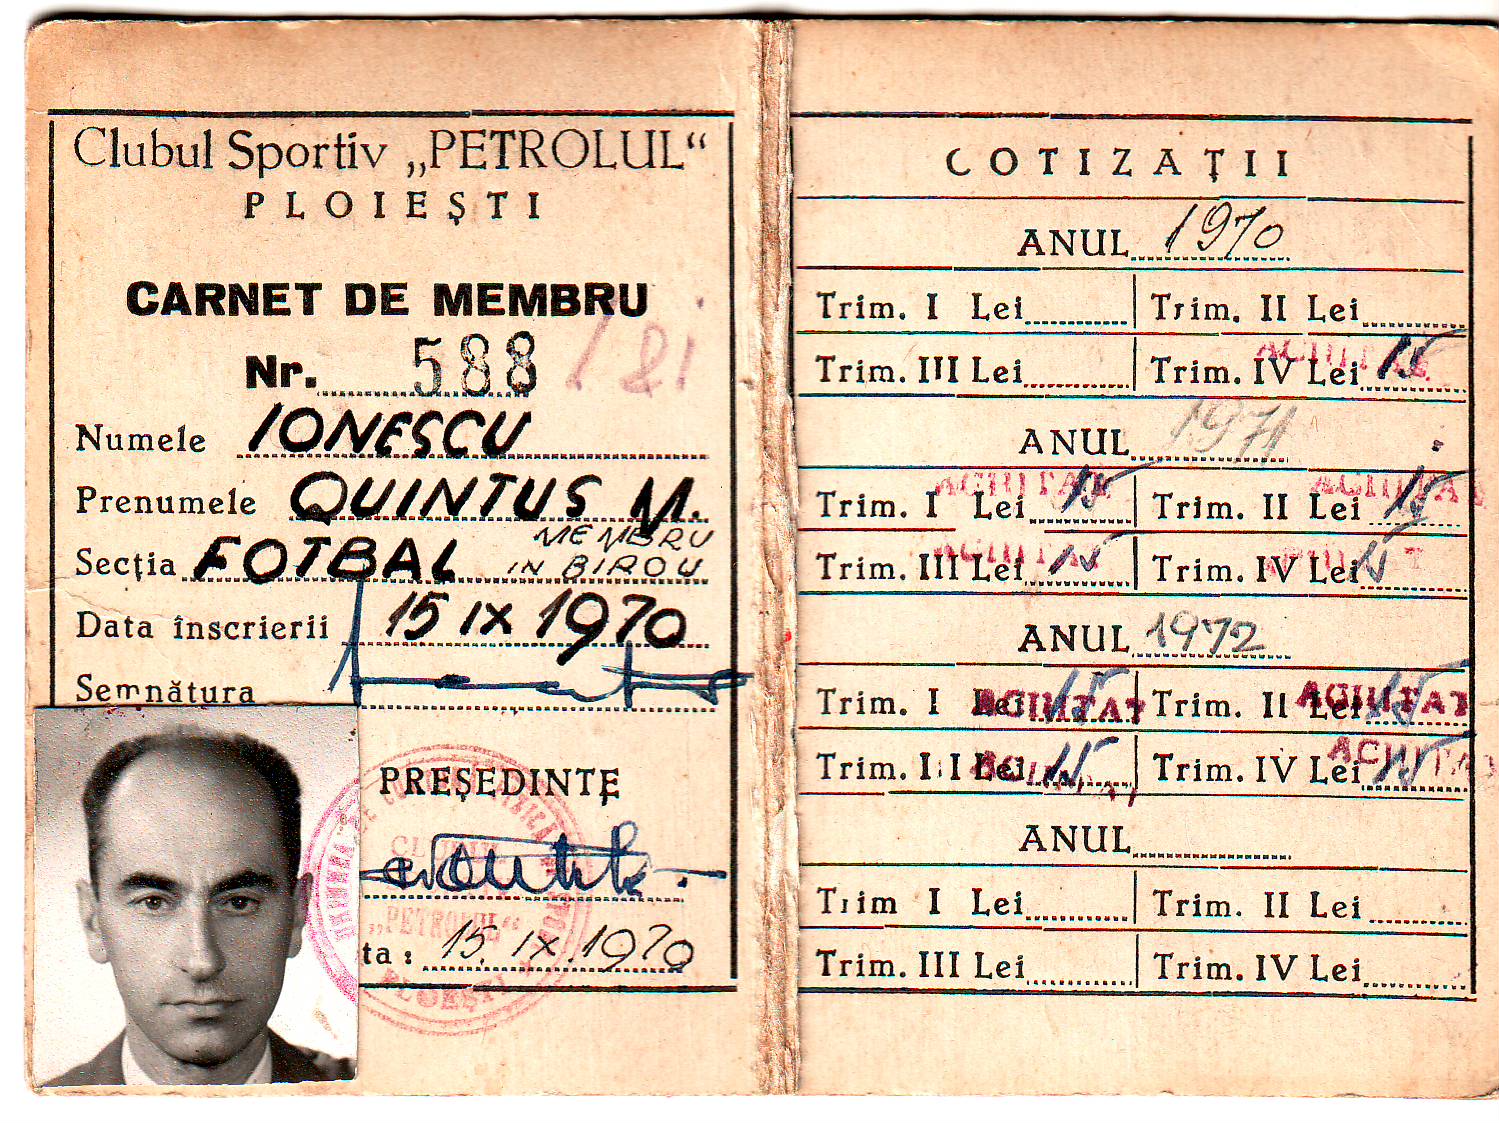 Clubul Sportiv „PETROLUL“
PLOIEȘTI
CARNET DE MEMBRU
Nr. 588
Numele IONESCU
Prenumele QUINTUS M.
Secția FOTBAL MEMBRU
IN BIROU
Data înscrierii 15 IX 1970
Semnătura
PREȘEDINTE
CLUBUL
„PETROLUL“
PLOEȘTI
ta: 15. IX. 1970
COTIZAȚII
ANUL 1970
Trim. I Lei Trim. II Lei
Trim. III Lei Trim. IV Lei 15 ACHITAT
ANUL 1971
Trim. I Lei 15 ACHITAT Trim. II Lei 15 ACHITAT
Trim. III Lei 15 ACHITAT Trim. IV Lei 15 ACHITAT
ANUL 1972
Trim. I Lei 15 ACHITAT Trim. II Lei 15 ACHITAT
Trim. III Lei 15 ACHITAT Trim. IV Lei 15 ACHITAT
ANUL
Trim I Lei Trim. II Lei
Trim. III Lei Trim. IV Lei